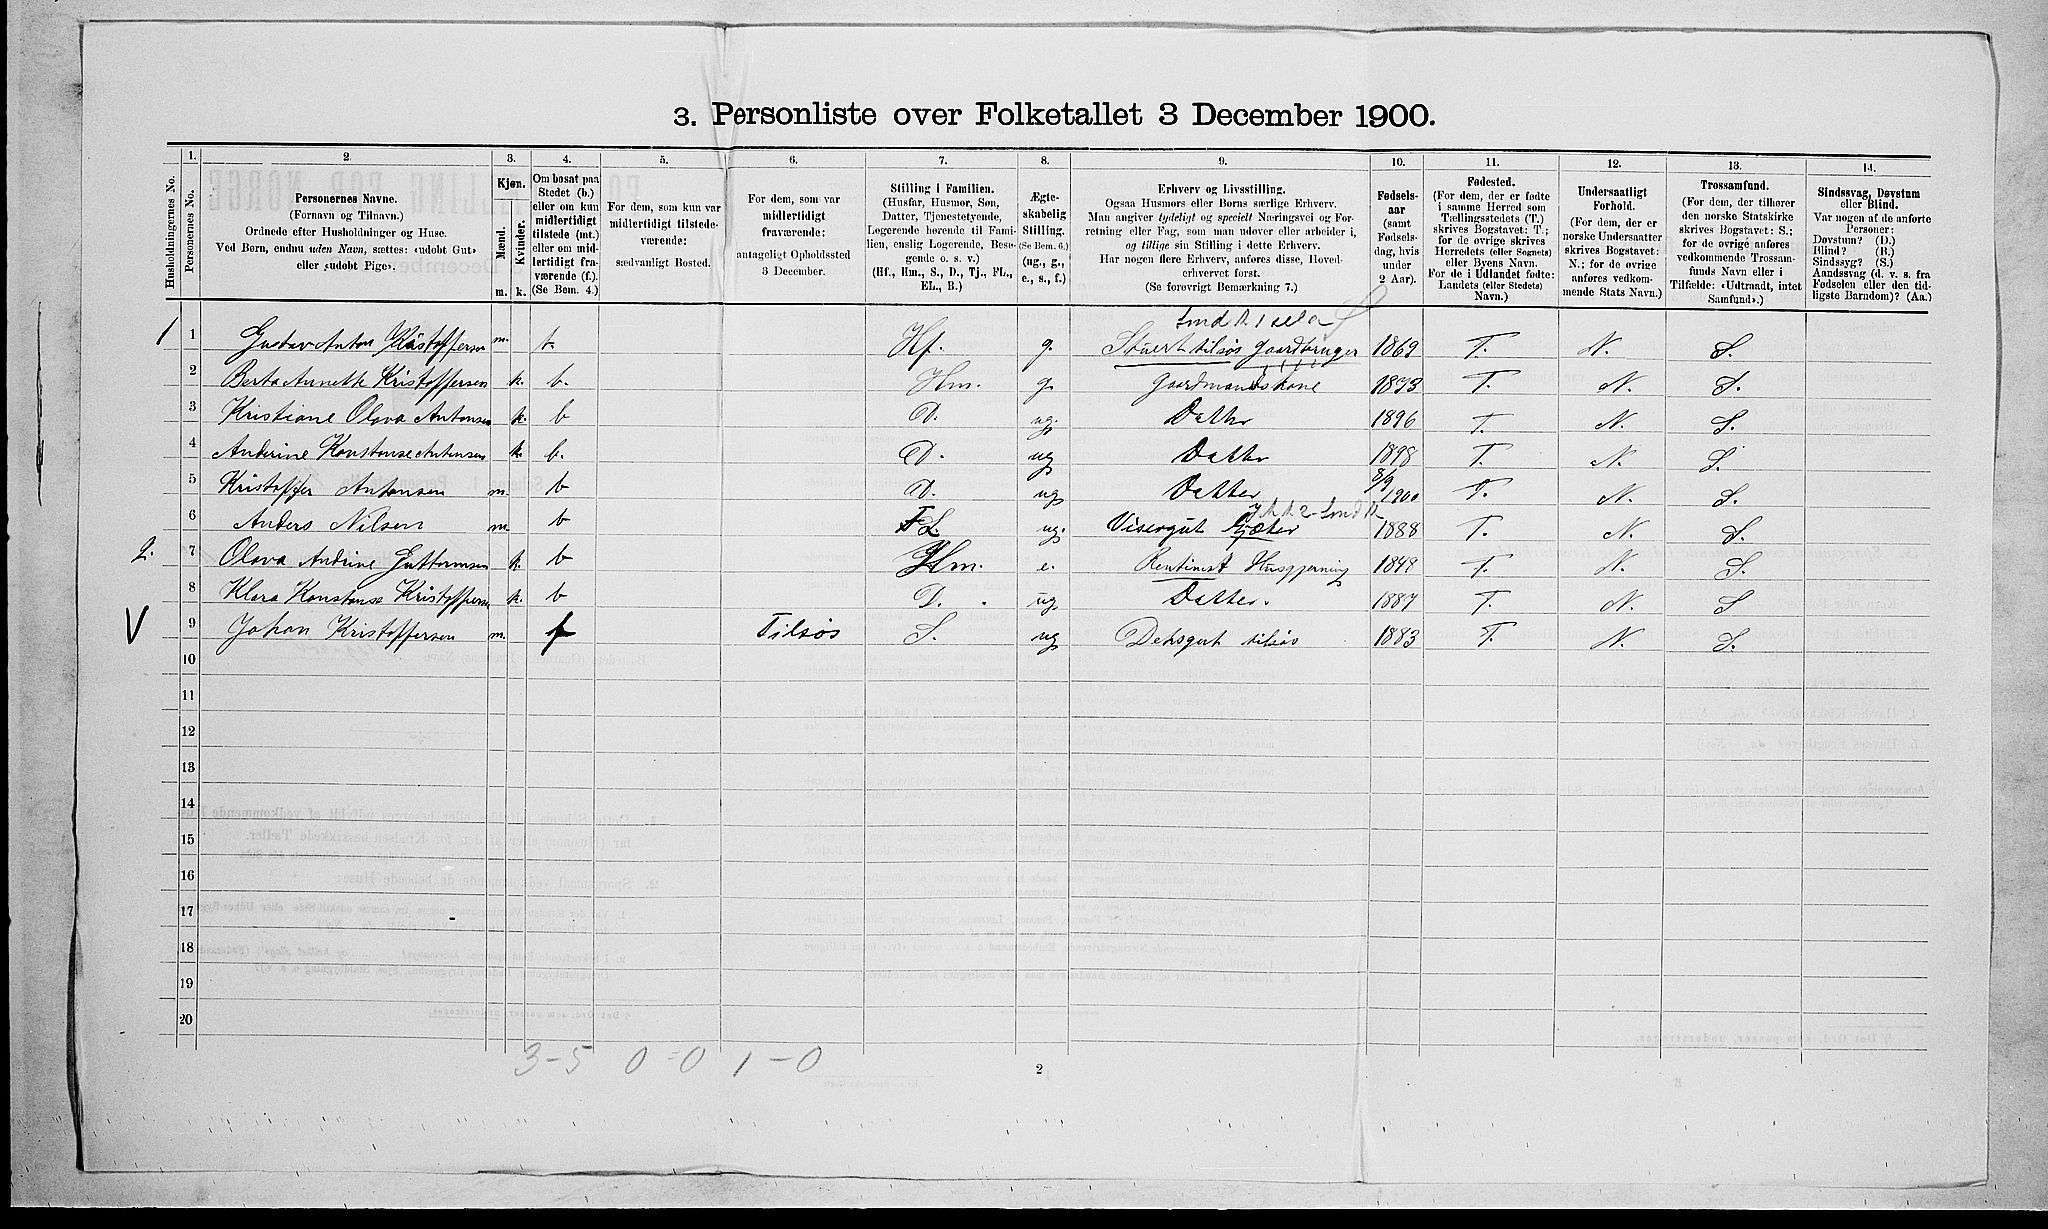 3. Personliste over Folketallet 3 December 1900.
1. 2. 3. 4. 5. 6. 7. 8. 9. 10. 11. 12. 13. 14.
Husholdningernes No.
Personernes No.
Personernes Navne.
(Fornavn og Tilnavn.)
Ordnede efter Husholdninger og Huse.
Ved Børn, endnu uden Navn, sættes: «udøbt Gut»
eller «udøbt Pige».
Kjøn.
Mænd.
Kvinder.
m. k.
Om bosat paa
Stedet (b.)
eller om kun
midlertidigt
tilstede (mt.)
eller om mid-
lertidigt fra-
værende (f.).
(Se Bem. 4.)
For dem, som kun var
midlertidigt tilstede-
værende:
sædvanligt Bosted.
For dem, som var
midlertidigt
fraværende:
antageligt Opholdssted
3 December.
Stilling i Familien.
(Husfar, Husmor, Søn,
Datter, Tjenestetyende,
Logerende hørende til Fami-
lien, enslig Logerende, Besø-
gende o. s. v.)
(Hf., Hm., S., D., Tj., FL.,
EL., B.)
Ægte-
skabelig
Stilling.
(Se Bem. 6.)
(ug., g.,
e., s., f.)
Erhverv og Livsstilling.
Ogsaa Husmors eller Børns særlige Erhverv.
Man angiver tydeligt og specielt Næringsvei og For-
retning eller Fag, som man udøver eller arbeider i,
og tillige sin Stilling i dette Erhverv.
Har nogen flere Erhverv, anføres disse, Hoved-
erhvervet først.
(Se forøvrigt Bemærkning 7.)
Fødsels-
aar
(samt
Fødsels-
dag, hvis
under
2 Aar).
Fødested.
(For dem, der er fødte
i samme Herred som
Tællingsstedets (T.)
skrives Bogstavet: T.;
for de øvrige skrives
Herredets (eller Sognets)
eller Byens Navn.
For de i Udlandet fødte:
Landets (eller Stedets)
Navn.)
Undersaatligt
Forhold.
(For dem, der er
norske Undersaatter
skrives Bogstavet:
N.; for de øvrige
anføres vedkom-
mende Stats Navn.)
Trossamfund.
(For dem, der tilhører
den norske Statskirke
skrives Bogstavet: S.;
for de øvrige anføres
vedkommende Trossam-
funds Navn eller i
Tilfælde: «Udtraadt, intet
Samfund».)
Sindssvag, Døvstum
eller Blind.
Var nogen af de anførte
Personer:
Døvstum? (D.)
Blind? (B.)
Sindssyg? (S.)
Aandssvag (d. v. s. fra
Fødselen eller den tid-
ligste Barndom)? (Aa.)
1 1 Gustav Anton Kristoffersen m. b. Hf. g. Stuert tilsøs Gaardbruger 1869 T. N. S.
2 Berta Annette Kristoffersen k. b. Hm. g. Gaardmandskone 1873 T. N. S.
3 Kristiane Olava Antonsen k. b D. ug. Datter 1896 T. N. S.
4 Anderine Konstanse Antonsen k. b. D. ug Datter 1898 T. N. S.
5 Kristoffer Antonsen m. b D. ug Datter 8/9 1900 T. N. S.
6 Anders Nilsen m. b FL. ug. Visergut Gjæter 1888 T. N. S.
2. 7 Olava Andrine Guttormsen k. b Hm. e. Rentinist Husgjerning 1848 T. N. S.
8 Klara Konstanse Kristoffersen k. b D. ug. Datter. 1887 T. N. S
V 9 Johan Kristoffersen m. f Tilsøs S. ug Deksgut tilsøs 1883 T. N. S.
10
11
12
13
14
15
16
17
18
19
20
3-5 0-0 1-0
2